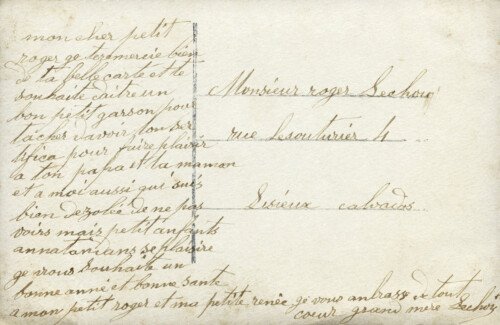 mon cher petit
roger ge te remercie bien
de ta belle carte et te
souhaite daitre un
bon petit garson pour
tacher davoir ton ser
tifica pour faire plaisir
a ton papa et ta maman
et a moi aussi qui suis
bien dezolée de ne pas
voirs mais petit anfants
annatandans se plaisire
ge vous souhaite un
bonne anné et bonne santé
a mon petit roger et ma petite renée ge vous anbrasse de tout
coeur grand mère Lechoix
Monsieur roger Lechoix
rue Lecouturier 4
Lisieux calvados